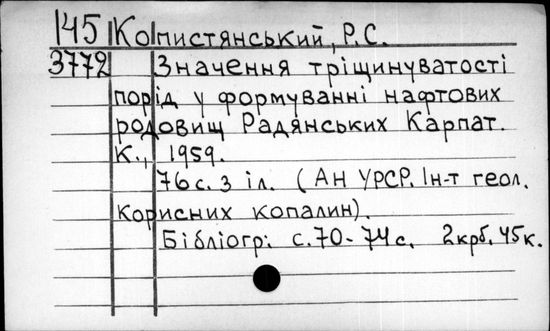 145 Копистянський, Р.С.
3772 Значення тріщинуватості
порід у формуванні нафтових
родовищ Радянських Карпат.
К., 1959.
76с. з іл. (АН УРСР. Ін-т геол.
корисних копалин).
Бібліогр: с.70-74с. 2крб. 45к.